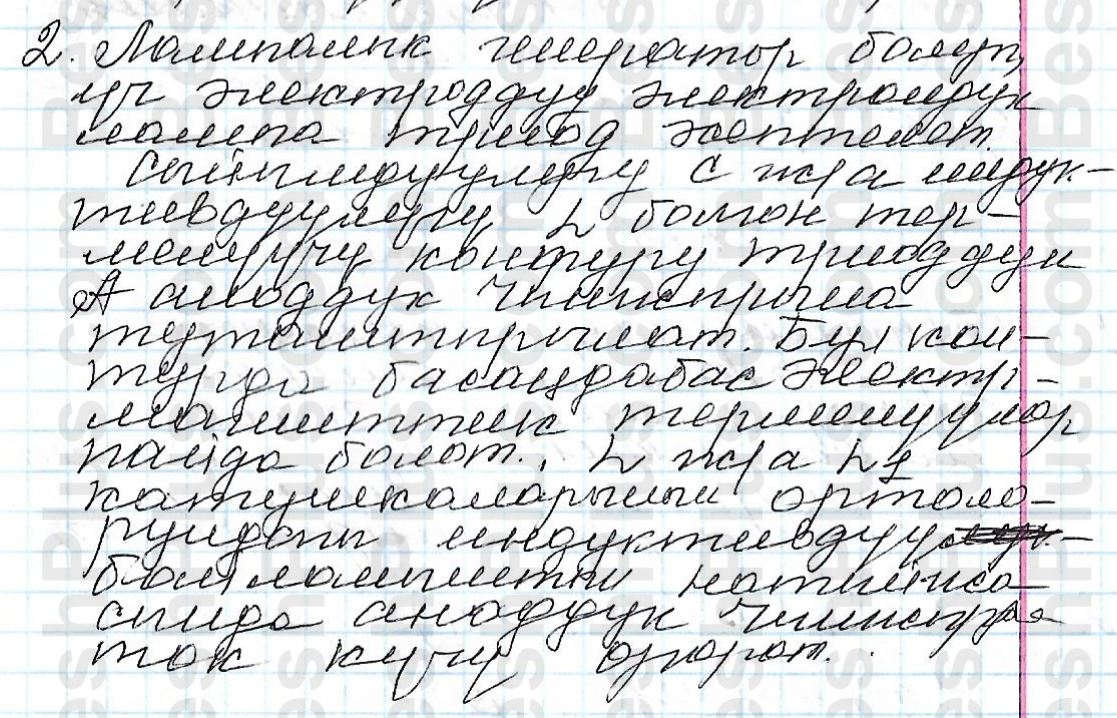 2. Лампалык генератор болуп,
үч электроддуу электрондук
лампа триод эсептелет.
Сыйымдуулугу C жа индук-
тивдүүлүгү L болгон тер-
мелүүчү контуру триоддун
A аноддук чынжрына
туташтырылат. Бул кон-
турда басаңдабас электр-
магниттик термелүүлөр
пайда болот. L жа L1
катушкаларынын ортоло-
рундагы индуктивдүү
байланыштын натыйжа-
сында аноддук чынжрда
ток күчү өзгөрөт.